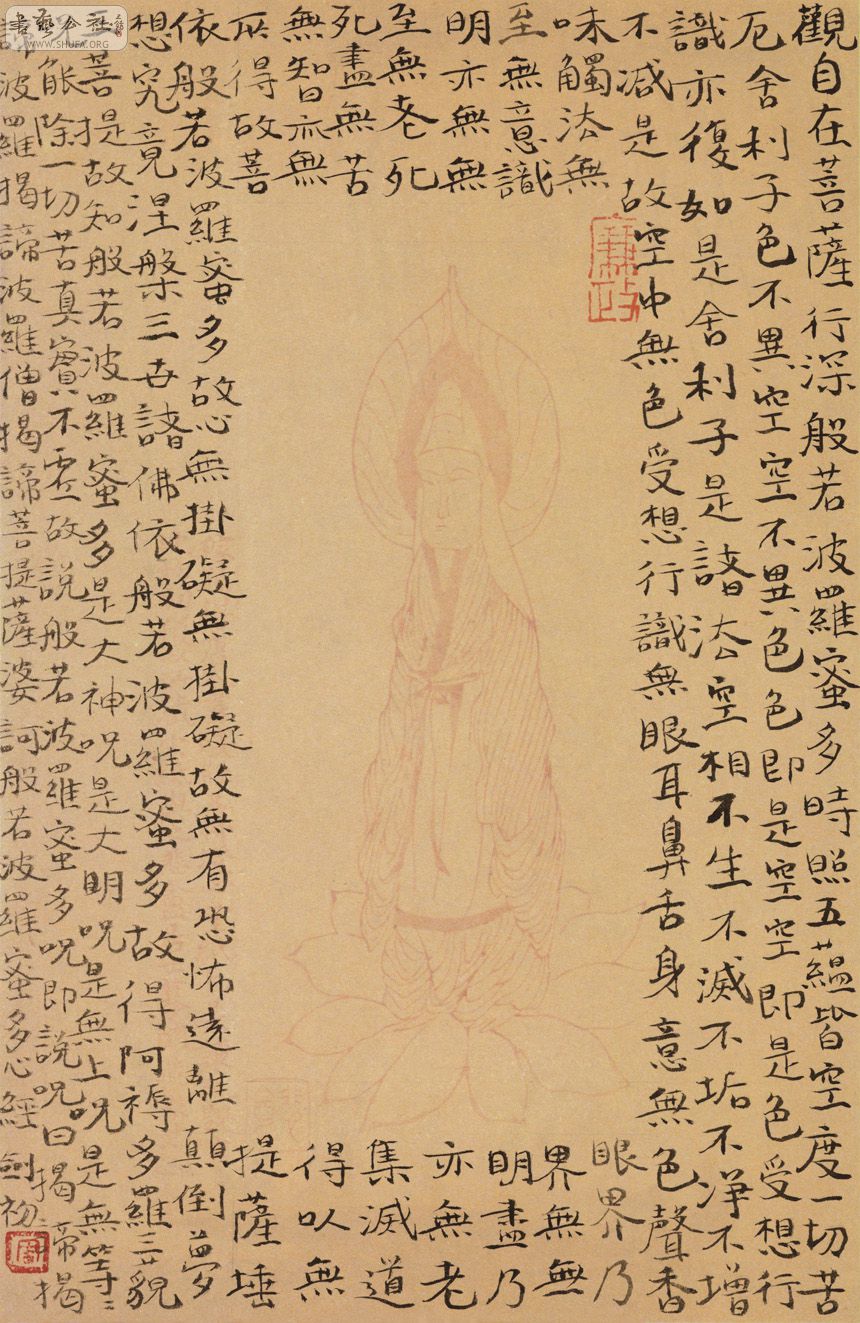 觀自在菩薩行深般若波羅蜜多時照五蘊皆空度一切苦
厄舍利子色不異空空不異色色即是空空即是色受想行
識亦復如是舍利子是諸法空相不生不滅不垢不淨不增
不減是故空中無色受想行識無眼耳鼻舌身意無色聲香
味觸法無眼界乃
至無意識界無無
明亦無無明盡乃
至無老死亦無老
死盡無苦集滅道
無智亦無得以無
所得故菩提薩埵
依般若波羅蜜多故心無掛礙無掛礙故無有恐怖遠離顛倒夢
想究竟涅槃三世諸佛依般若波羅蜜多故得阿耨多羅三藐
三菩提故知般若波羅蜜多是大神呪是大明呪是無上呪是無等〻
呪能除一切苦真實不虛故說般若波羅蜜多呪即說呪曰揭諦揭
諦波羅揭諦波羅僧揭諦菩提薩婆訶般若波羅蜜多心經 劍初
書藝公社
WWW.SHUFA.ORG